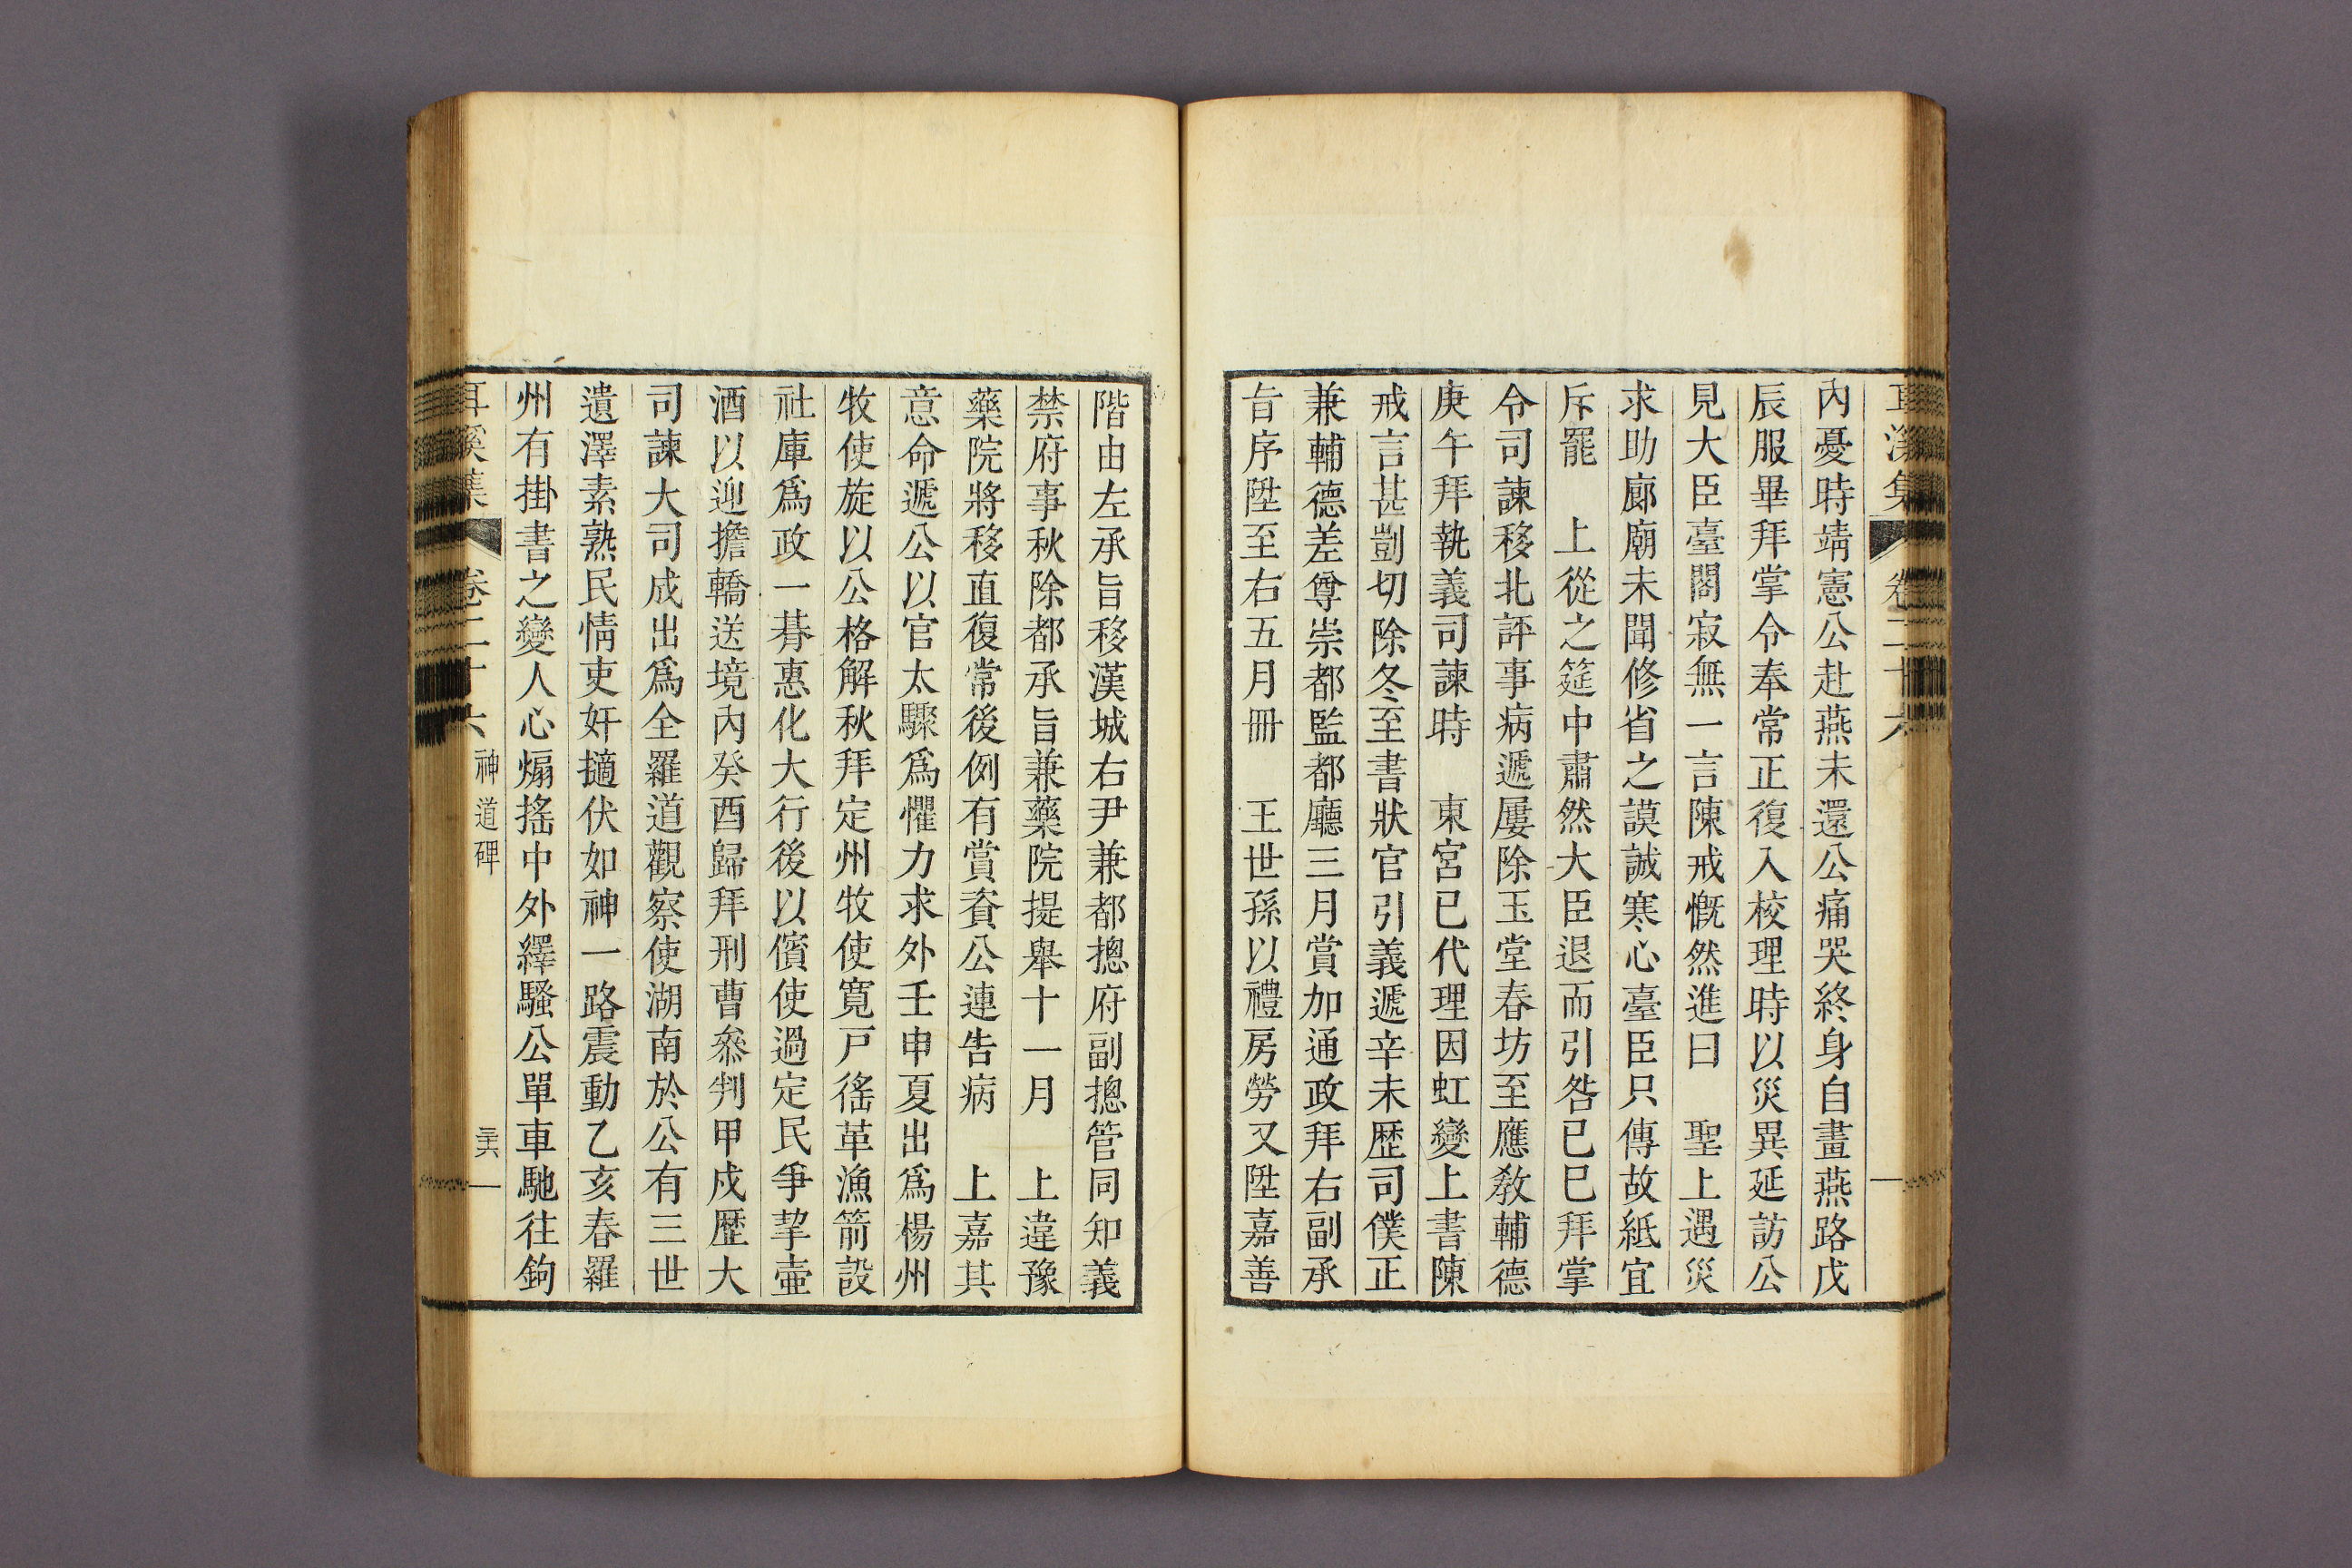 耳溪集 卷二十六
內憂時靖憲公赴燕未還公痛哭終身自畫燕路戊
辰服畢拜掌令奉常正復入校理時以災異延訪公
見大臣臺閣寂無一言陳戒慨然進曰 聖上遇災
求助廊廟未聞修省之謨誠寒心臺臣只傳故紙宜
斥罷 上從之筵中肅然大臣退而引咎已巳拜掌
令司諫移北評事病遞屢除玉堂春坊至應敎輔德
庚午拜執義司諫時 東宮已代理因虹變上書陳
戒言甚剴切除冬至書狀官引義遞辛未歷司僕正
兼輔德差尊崇都監都廳三月賞加通政拜右副承
旨序陞至右五月冊 王世孫以禮房勞又陞嘉善
階由左承旨移漢城右尹兼都摠府副摠管同知義
禁府事秋除都承旨兼藥院提舉十一月 上違豫
藥院將移直復常後例有賞賚公連告病 上嘉其
意命遞公以官太驟爲懼力求外壬申夏出爲楊州
牧使旋以公格解秋拜定州牧使寬戶徭革漁箭設
社庫爲政一朞惠化大行後以儐使過定民爭挈壺
酒以迎擔轎送境內癸酉歸拜刑曹叅判甲戌歷大
司諫大司成出爲全羅道觀察使湖南於公有三世
遺澤素熟民情吏奸擿伏如神一路震動乙亥春羅
州有掛書之變人心煽搖中外繹騷公單車馳往鉤
耳溪集 卷二十六 神道碑 三六